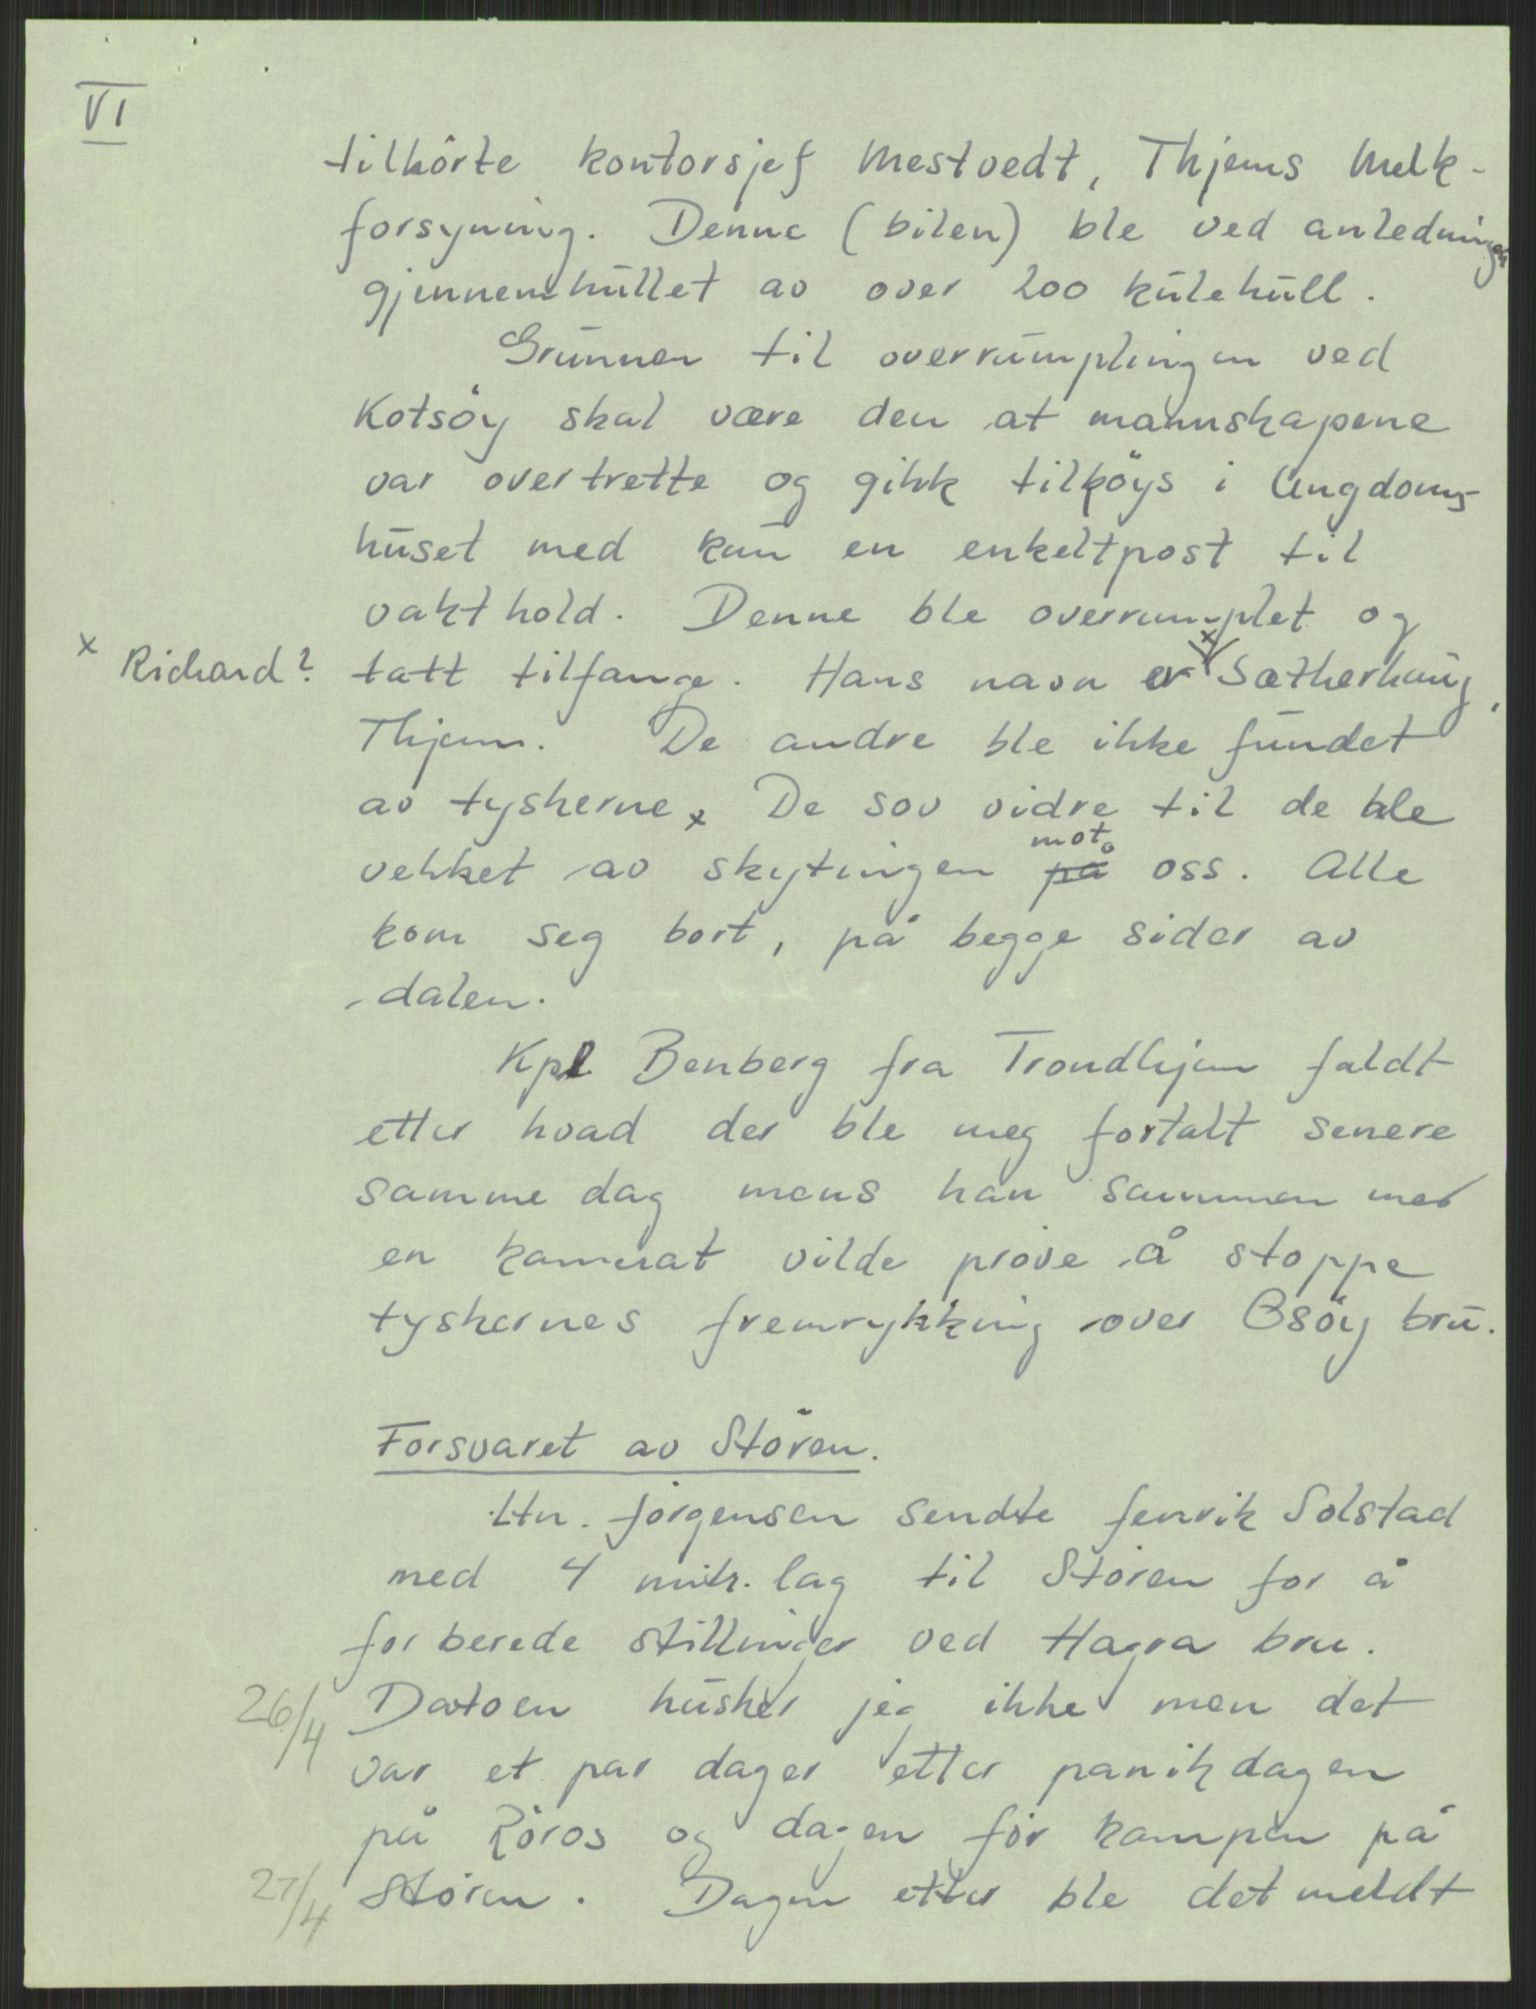 VI
tilhörte kontorsjef Mestvedt, Thjems Melk-
forsyning. Denne (bilen) ble ved anledningen
gjennemhullet av over 200 kulehull.
Grunnen til overrumplingen ved
Kotsöy skal være den at mannskapene
var overtrette og gikk tilköys i Ungdoms-
huset med kun en enkeltpost til
vakthold. Denne ble overrumplet og
x Richard? tatt tilfange. Hans navn er x Sætherhaug,
Thjem. De andre ble ikke fundet
av tyskerne x De sov vidre til de ble
vekket av skytingen på mot oss. Alle
kom seg bort, på begge sider av
dalen.
Kpl Benberg fra Trondhjem faldt
etter hvad der ble meg fortalt senere
samme dag mens han sammen med
en kamerat vilde pröve å stoppe
tyskernes fremrykking over Osöy bru.
Forsvaret av Stören.
Ltn. Jörgensen sendte fenrik Solstad
med 4 mitr. lag til Stören for å
forberede stillinger ved Hagra bru.
26/4 Datoen husker jeg ikke men det
var et par dager etter panikdagen
på Röros og dagen för kampen på
27/4 Stören. Dagen etter ble det meldt